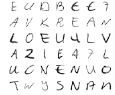 E U D B E € ?
A V K R E A N
L O E U 4 L V
A Z I E 4 7 L
U C N E N U O
T W J S N A n